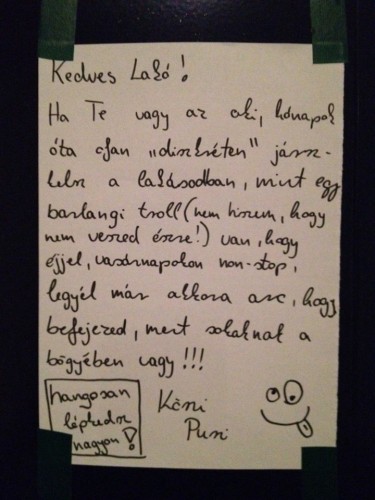 Kedves Lakó!
Ha Te vagy az aki, hónapok
óta olyan „diszkréten" jársz-
kelsz a lakásodban, mint egy
barlangi troll (nem hiszem, hogy
nem veszed észre!) van, hogy
éjjel, vasárnapokon non-stop,
legyél már akkora arc, hogy
befejezed, mert sokaknak a
bögyében vagy!!!
hangosan
léptedsz
nagyon!
Köszi
Puszi